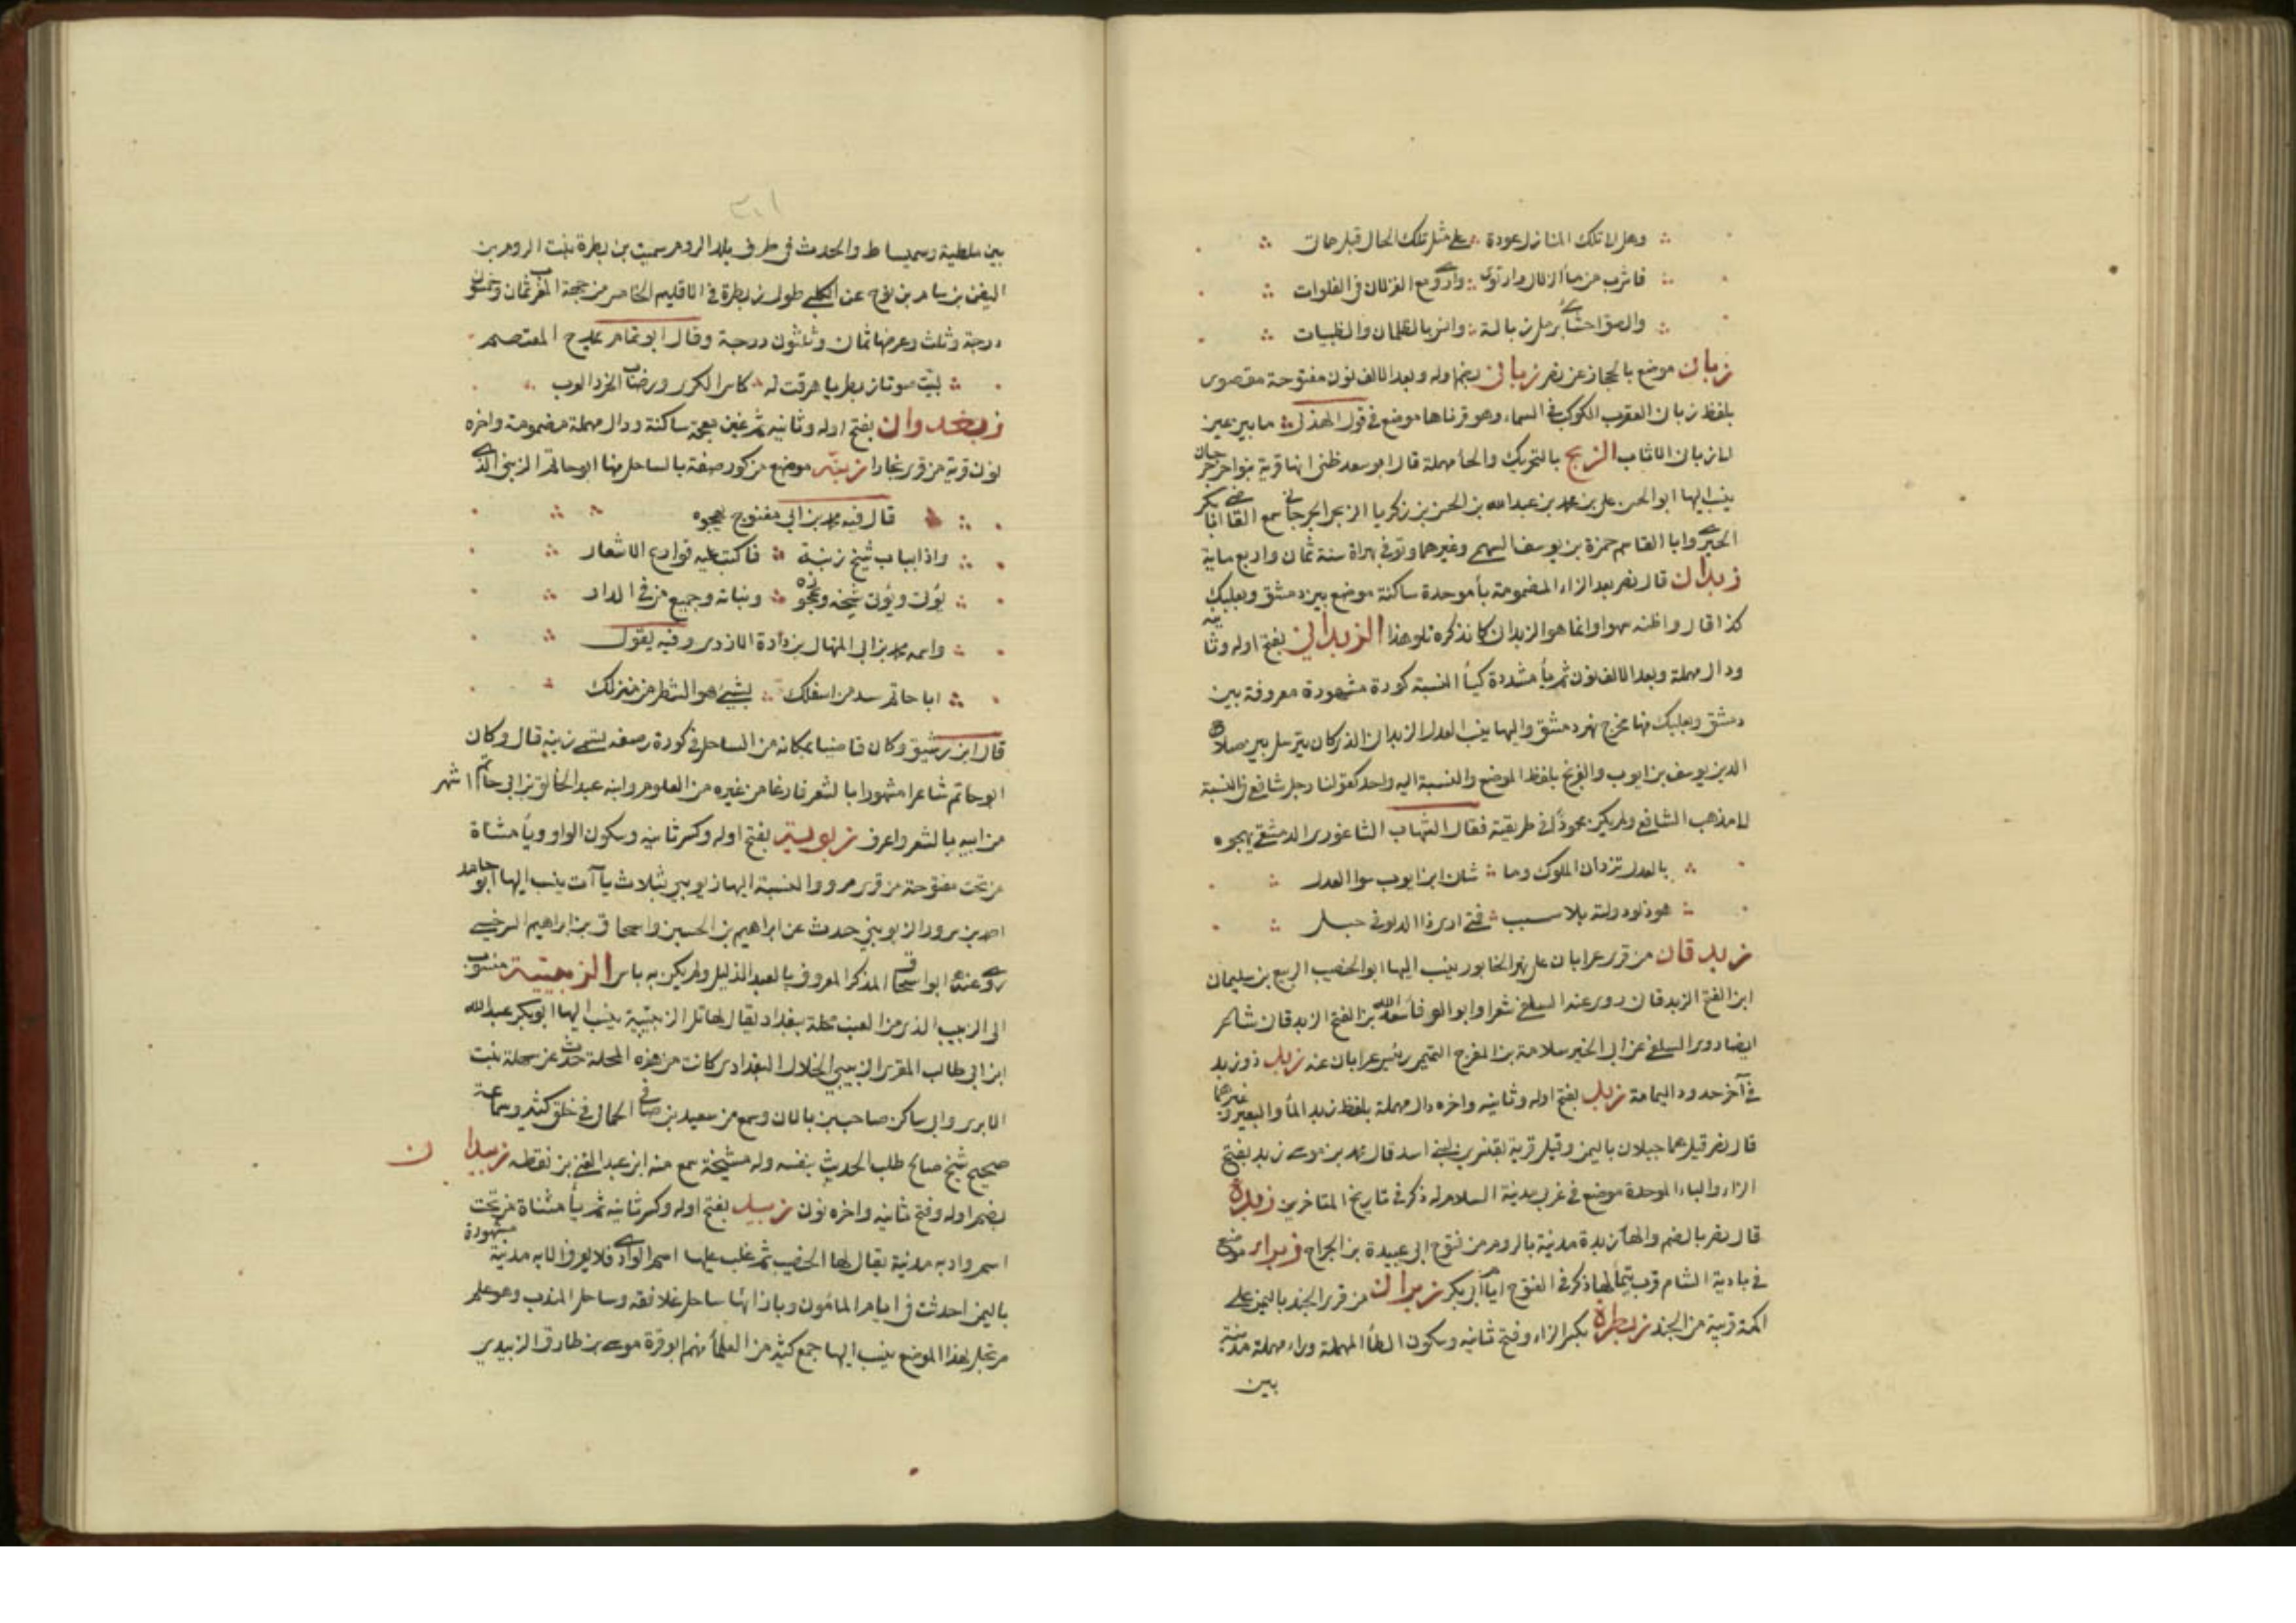 وهل لا تلك المنازل عودة على مثل تلك الحال قبل مماتي
فاشرب من ماء الزلال وارتوى وارعى مع الغزلان في الفلوات
والصق احشائي برمل زبالة وانس بالظلمان والظبيات
زبان موضع بالحجاز عن نصر زبانى بضم اوله وبعد الالف نون مفتوحة مقصور
بلفظ زبانى العقرب الكوكب في السماء وهو قرناها موضع في قول الهذلي ما بين عين
الى زبانى الاثأب الزبح بالتحريك والحاء مهملة قال ابو سعد ظني انها قرية بنواحي جرجان
ينسب اليها ابو الحسن علي بن محمد بن عبد الله بن الحسن بن زكريا الزبحي الجرجاني سمع القاضي ابا بكر
الحيري وابا القاسم حمزة بن يوسف السهمي وغيرهما وتوفي بهراة سنة ثمان واربع ماية
زبدان قال نصر بعد الزاء المضمومة باء موحدة ساكنة موضع بين دمشق وبعلبك
كذا قال واظنه سهوا وانما هو الزبدانى كما نذكره تلو هذا الزبداني بفتح اوله وثانيه
ودال مهملة وبعد الالف نون ثم ياء مشددة كياء النسبة كورة مشهورة معروفة بين
دمشق وبعلبك منها مخرج نهر دمشق واليها ينسب العدل الزبدانى الذي كان يترسل بين صلاح
الدين يوسف بن ايوب والفرنج بلفظ الموضع والنسبة اليه واحد كقولنا رجل شافعي في النسبة
الى مذهب الشافعي ولم يكن محمودًا في طريقته فقال الشهاب الشاغوري الدمشقي يهجوه
بالعدل تزدان الملوك وما شان ابن ايوب سوا العدل
هو دلو دولته بلا سبب فمتى ارى ذا الدلو في حبل
زبدقان من قرى عرابان على نهر الخابور ينسب اليها ابو الخصيب الربيع بن سليمان
ابن الفتح الزبدقاني روى عنه السلفي شعرا وابو الوفاء سعد الله بن الفتح الزبدقاني شاعر
ايضا روى السلفي عن ابي الخير سلامة بن المفرج التميمي رئيس عرابان عنه زبد ذو زبد
في آخر حدود اليمامة زبد بفتح اوله وثانيه واخره دال مهملة بلفظ زبد الماء والبعير وغيرهما
قال نصر قيل هما جبلان باليمن وقيل قرية بقنسرين لبني اسد قال محمد بن موسى زبد بفتح
الزاء والباء الموحدة موضع في غربي مدينة السلام له ذكر في تاريخ المتاخرين زبدة
قال نصر بالضم والهاء زبدة مدينة بالروم من فتوح ابي عبيدة بن الجراح زبراء موضع
في بادية الشام قرب تيماء لها ذكر في الفتوح ايام ابي بكر زبران من قرى الجند باليمن على
اكمة قريبة من الجند زبطرة بكسر الزاء وفتح ثانيه وسكون الطاء المهملة وراء مهملة مدينة
بين
٣٠١
بين ملطية وسميساط والحدث في طرف بلد الروم سميت بن بطرة بنت الروم بن
اليفن بن سام بن نوح عن الكلبي طول زبطرة في الاقليم الخامس من جهة المغرب ثمان وخمسون
درجة وثلث وعرضها ثمان وثلثون درجة وقال ابو تمام يمدح المعتصم
لبيت صوتا زبطريا هرقت له كاس الكرى ورضاب الخرد العرب
زبغدوان بفتح اوله وثانيه ثم غين معجمة ساكنة ودال مهملة مضمومة واخره
نون قرية من قرى بخارا زبنه موضع من كورة صفة بالساحل منها ابو حاتم الزبني الذي
قال فيه محمد بن ابي مفتوح يهجوه
واذا بباب شيخ زبنة فاكتب عليه قوارع الاشعار
يؤتى ويؤتى شيخه وعجوزه وبناته وجميع من في الدار
واسمه محمد بن ابي المنهال بن دادة الازدي وفيه يقول
ابا حاتم سد من اسفلك بشيء هو الشطر من منزلك
قال ابن رشيق وكان قاضيا بمكانه من الساحل في كورة رصفه تسمى زبنه قال وكان
ابو حاتم شاعرا مشهورا بالشعر فارغا من غيره من العلوم وابنه عبد الخالق بن ابي حاتم اشهر
من ابيه بالشعر واعرف زبوييه بفتح اوله وكسر ثانيه وسكون الواو وياء مثناة
من تحت مفتوحة من قرى مرو والنسبة اليها زبويي بثلاث ياآت ينسب اليها ابو حامد
احمد بن سرور الزبويي حدث عن ابراهيم بن الحسين واسحاق بن ابراهيم السرخسي
روى عنه ابو اسحاق المذكر المعروف بالعبد الذليل ولم يكن به باس الزبيبية منسوب
الى الزبيب الذي من العنب محلة ببغداد يقال لها تل الزبيبية ينسب اليها ابو بكر عبد الله
ابن ابي طالب المقري الزبيبي الخلال البغدادي كانت من هذه المحلة حدث عن شهدة بنت
الابري وابي ساكن صاحب بن بالان وسمع من سعيد بن صافي الحمال في خلق كثير وسماعه
صحيح شيخ صالح طلب الحديث بنفسه وله مشيخة سمع منه ابن عبد الغني بن نقطه زبيدان
بضم اوله وفتح ثانيه واخره نون زبيد بفتح اوله وكسر ثانيه ثم ياء مثناة من تحت
اسم واد به مدينة يقال لها الحصيب ثم غلب عليها اسم الوادي فلا يعرف الا به مدينة مشهورة
باليمن احدثت في ايام المامون وبازائها ساحل غلافقه وساحل المندب وهو علم
مرتجل لهذا الموضع ينسب اليها جمع كثير من العلماء منهم ابو قرة موسى بن طارق الزبيدي